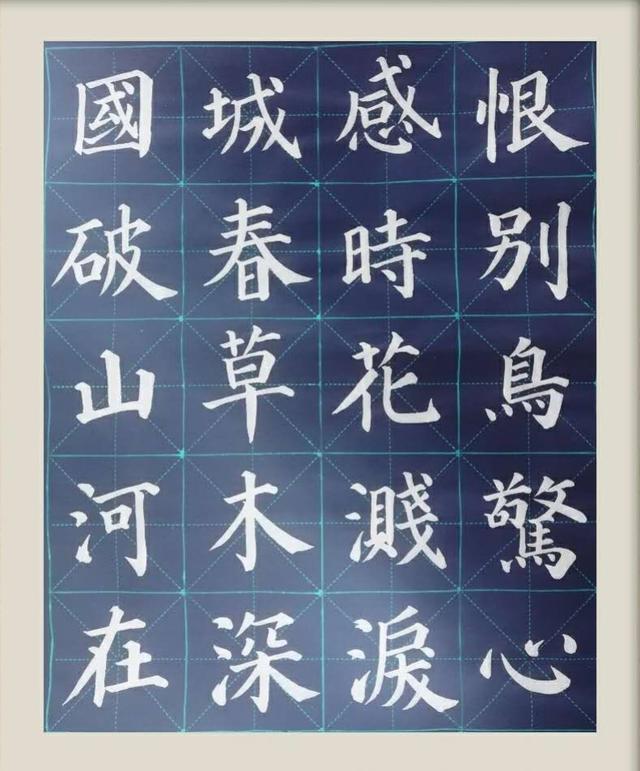 國破山河在
城春草木深
感時花濺淚
恨别鳥驚心